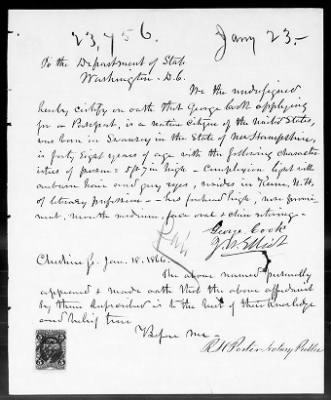 23,756.
Jany 23-
To the Department of State
Washington - D.C.
We the undersigned
hereby certify on oath that George Cook applying
for a Passport, is a native Citizen of the United States,
was born in Swanzey in the State of New Hampshire,
is forty Eight years of age with the following character
istics of person = 5/7 in high - Complexion light with
auburn hair and grey eyes, resides in Keene, N.H.
of literary profession - has forehead high, nose promi
nent, mouth medium, face oval & chin
George Cook
Elliot
Jan. 18, 1866.
The above named personally
appeared & made oath that the above affidavit
by them subscribed is to the best of their knowledge
and belief true
Before me -
Porter Notary Public